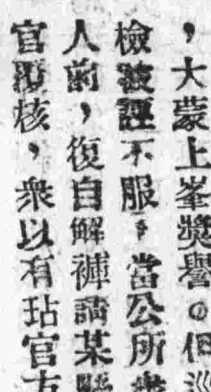 ，大蒙上峯獎譽。但巡
檢被誣不服，當公所
人前，復自解褲請某
官覆核，衆以有玷官方